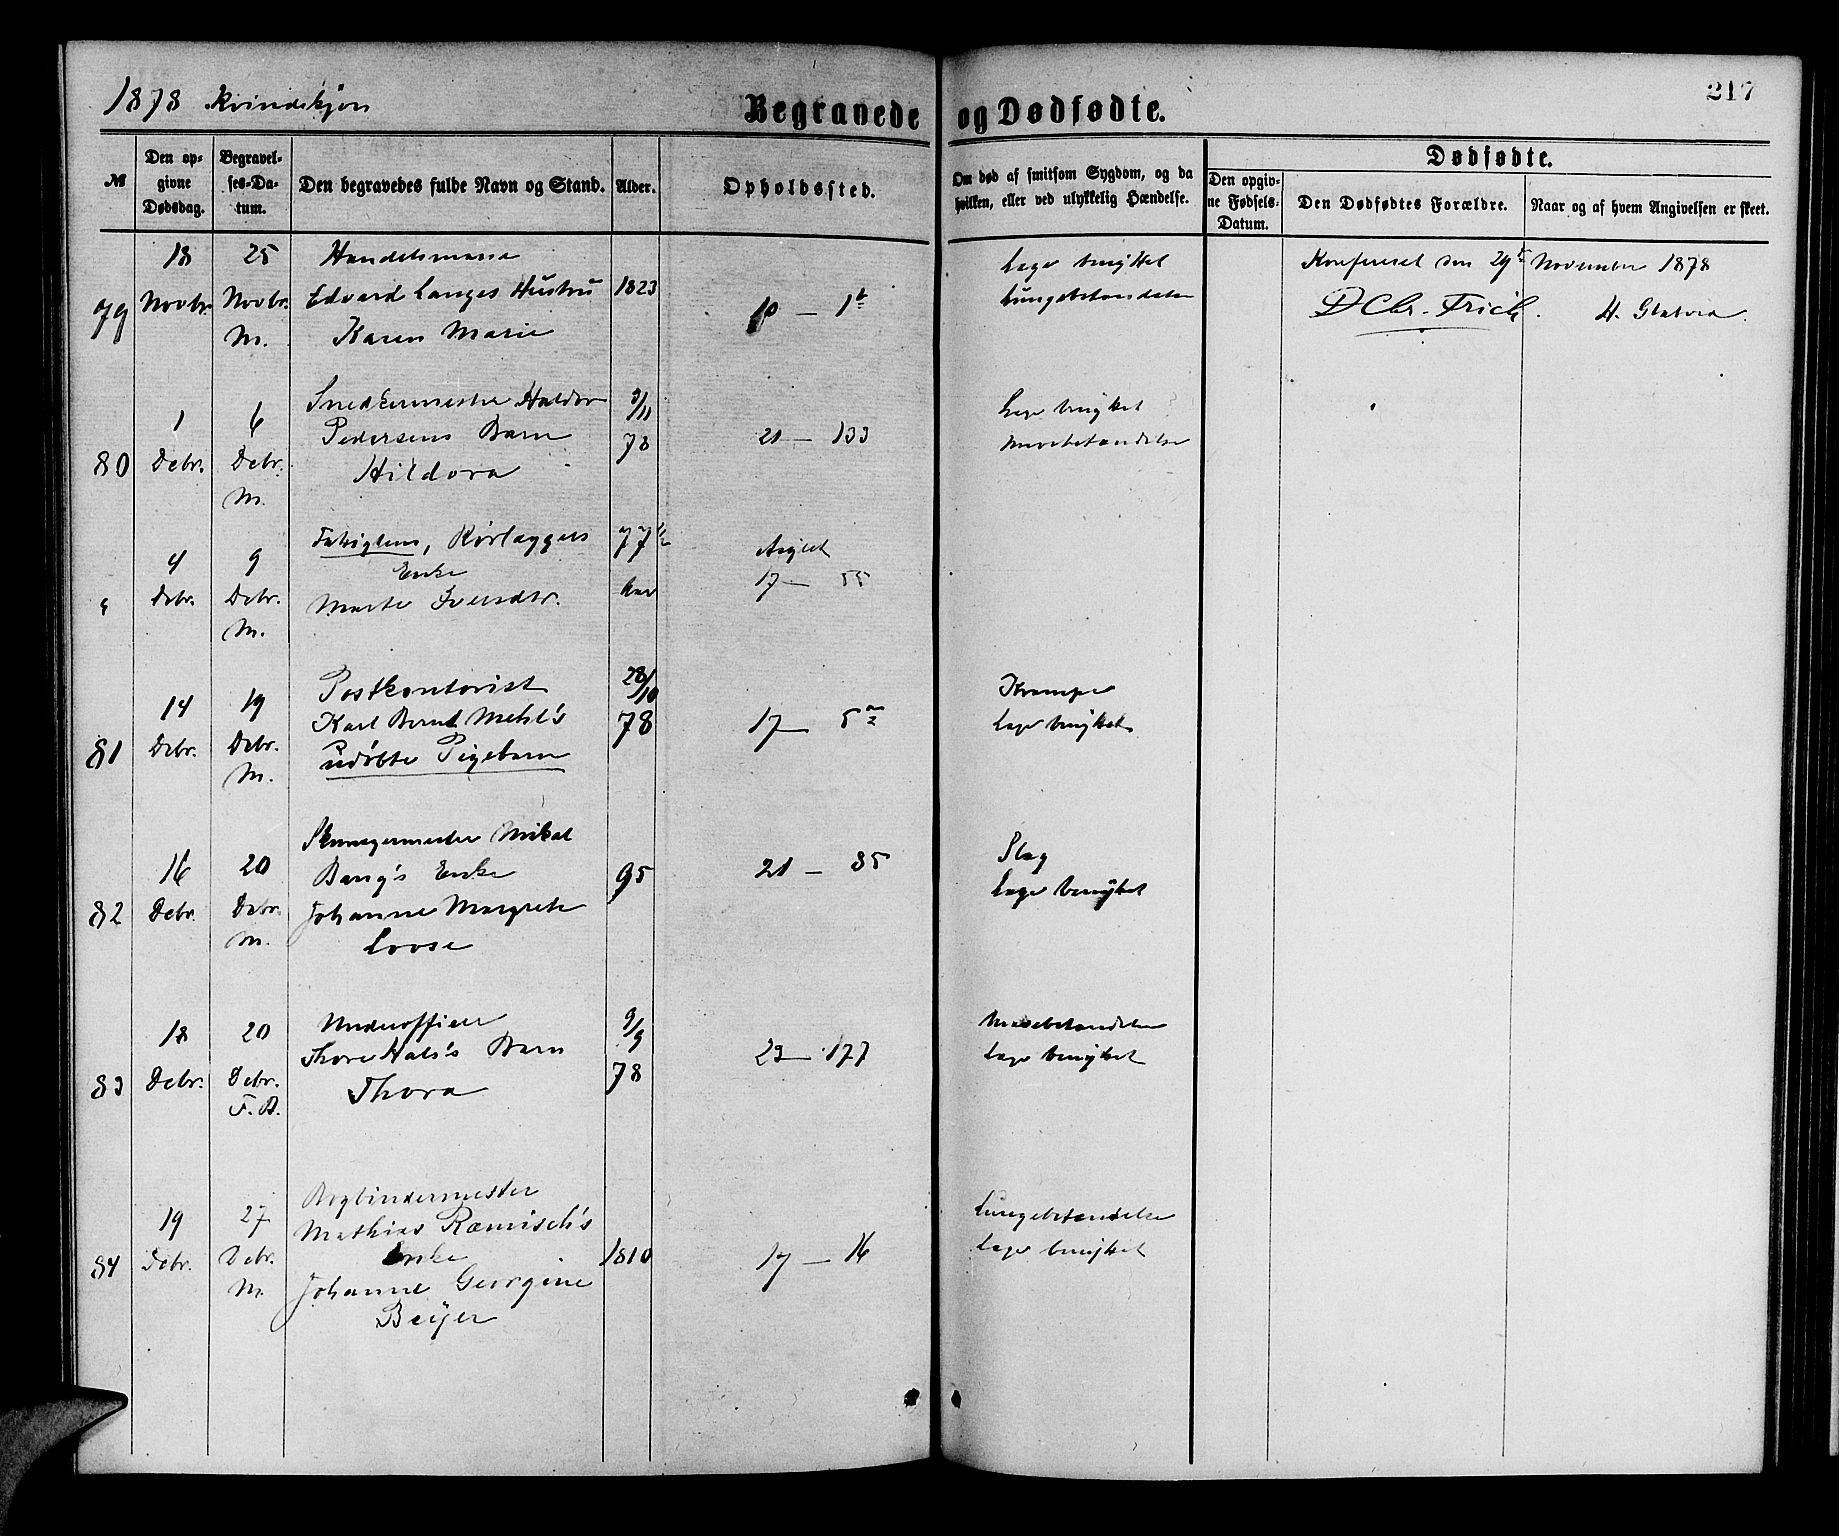 1878 Kvindekjøn
Begravede og Dødfødte.
217
№
Den op-
givne
Dødsdag.
Begravel-
ses-Da-
tum.
Den begravedes fulde Navn og Stand.
Alder.
Opholdssted.
Om død af smitsom Sygdom, og da
hvilken, eller ved ulykkelig Hændelse.
Dødfødte.
Den opgiv-
ne Fødsels-
Datum.
Den Dødfødtes Forældre.
Naar og af hvem Angivelsen er skeet.
79
18
Novbr.
25
Novbr.
M.
Handelsmand
Edvard Langes Hustru
Karen Marie
1823
10 — 1
Læge benyttet
Lungebetændelse
Konfereret den 29 November 1878
D Chr. Frich. H.
80
1
Debr.
6
Debr.
M.
Snedkermester Haldor
Pedersens Barn
Hildora
9/11
78
21 — 133
Læge benyttet
81
4
Debr.
9
Debr.
M.
Fattiglem,
Enke
Marte Iversdtr.
77
Asylet
17 — 55
14
Debr.
19
Debr.
M.
Postkontorist
Karl Bernt Mehl's
udøbte Pigebarn
28/10
78
17 — 5
Krampe
Læge benyttet
82
16
Debr.
20
Debr.
M.
Skomagermester Mikal
Bang's Enke
Johanne Margrete
Loose
95
21 — 35
Slag
Læge benyttet
83
18
Debr.
20
Debr.
F. D.
Underofficer
Thore Hals's Barn
Thora
9/9
78
23 — 177
Læge benyttet
84
19
Debr.
27
Debr.
M.
Bogbindermester
Mathias Ræmisch's
Enke
Johanne Georgine
Beijer
1810
17 — 16
Lungebetændelse
Læge benyttet